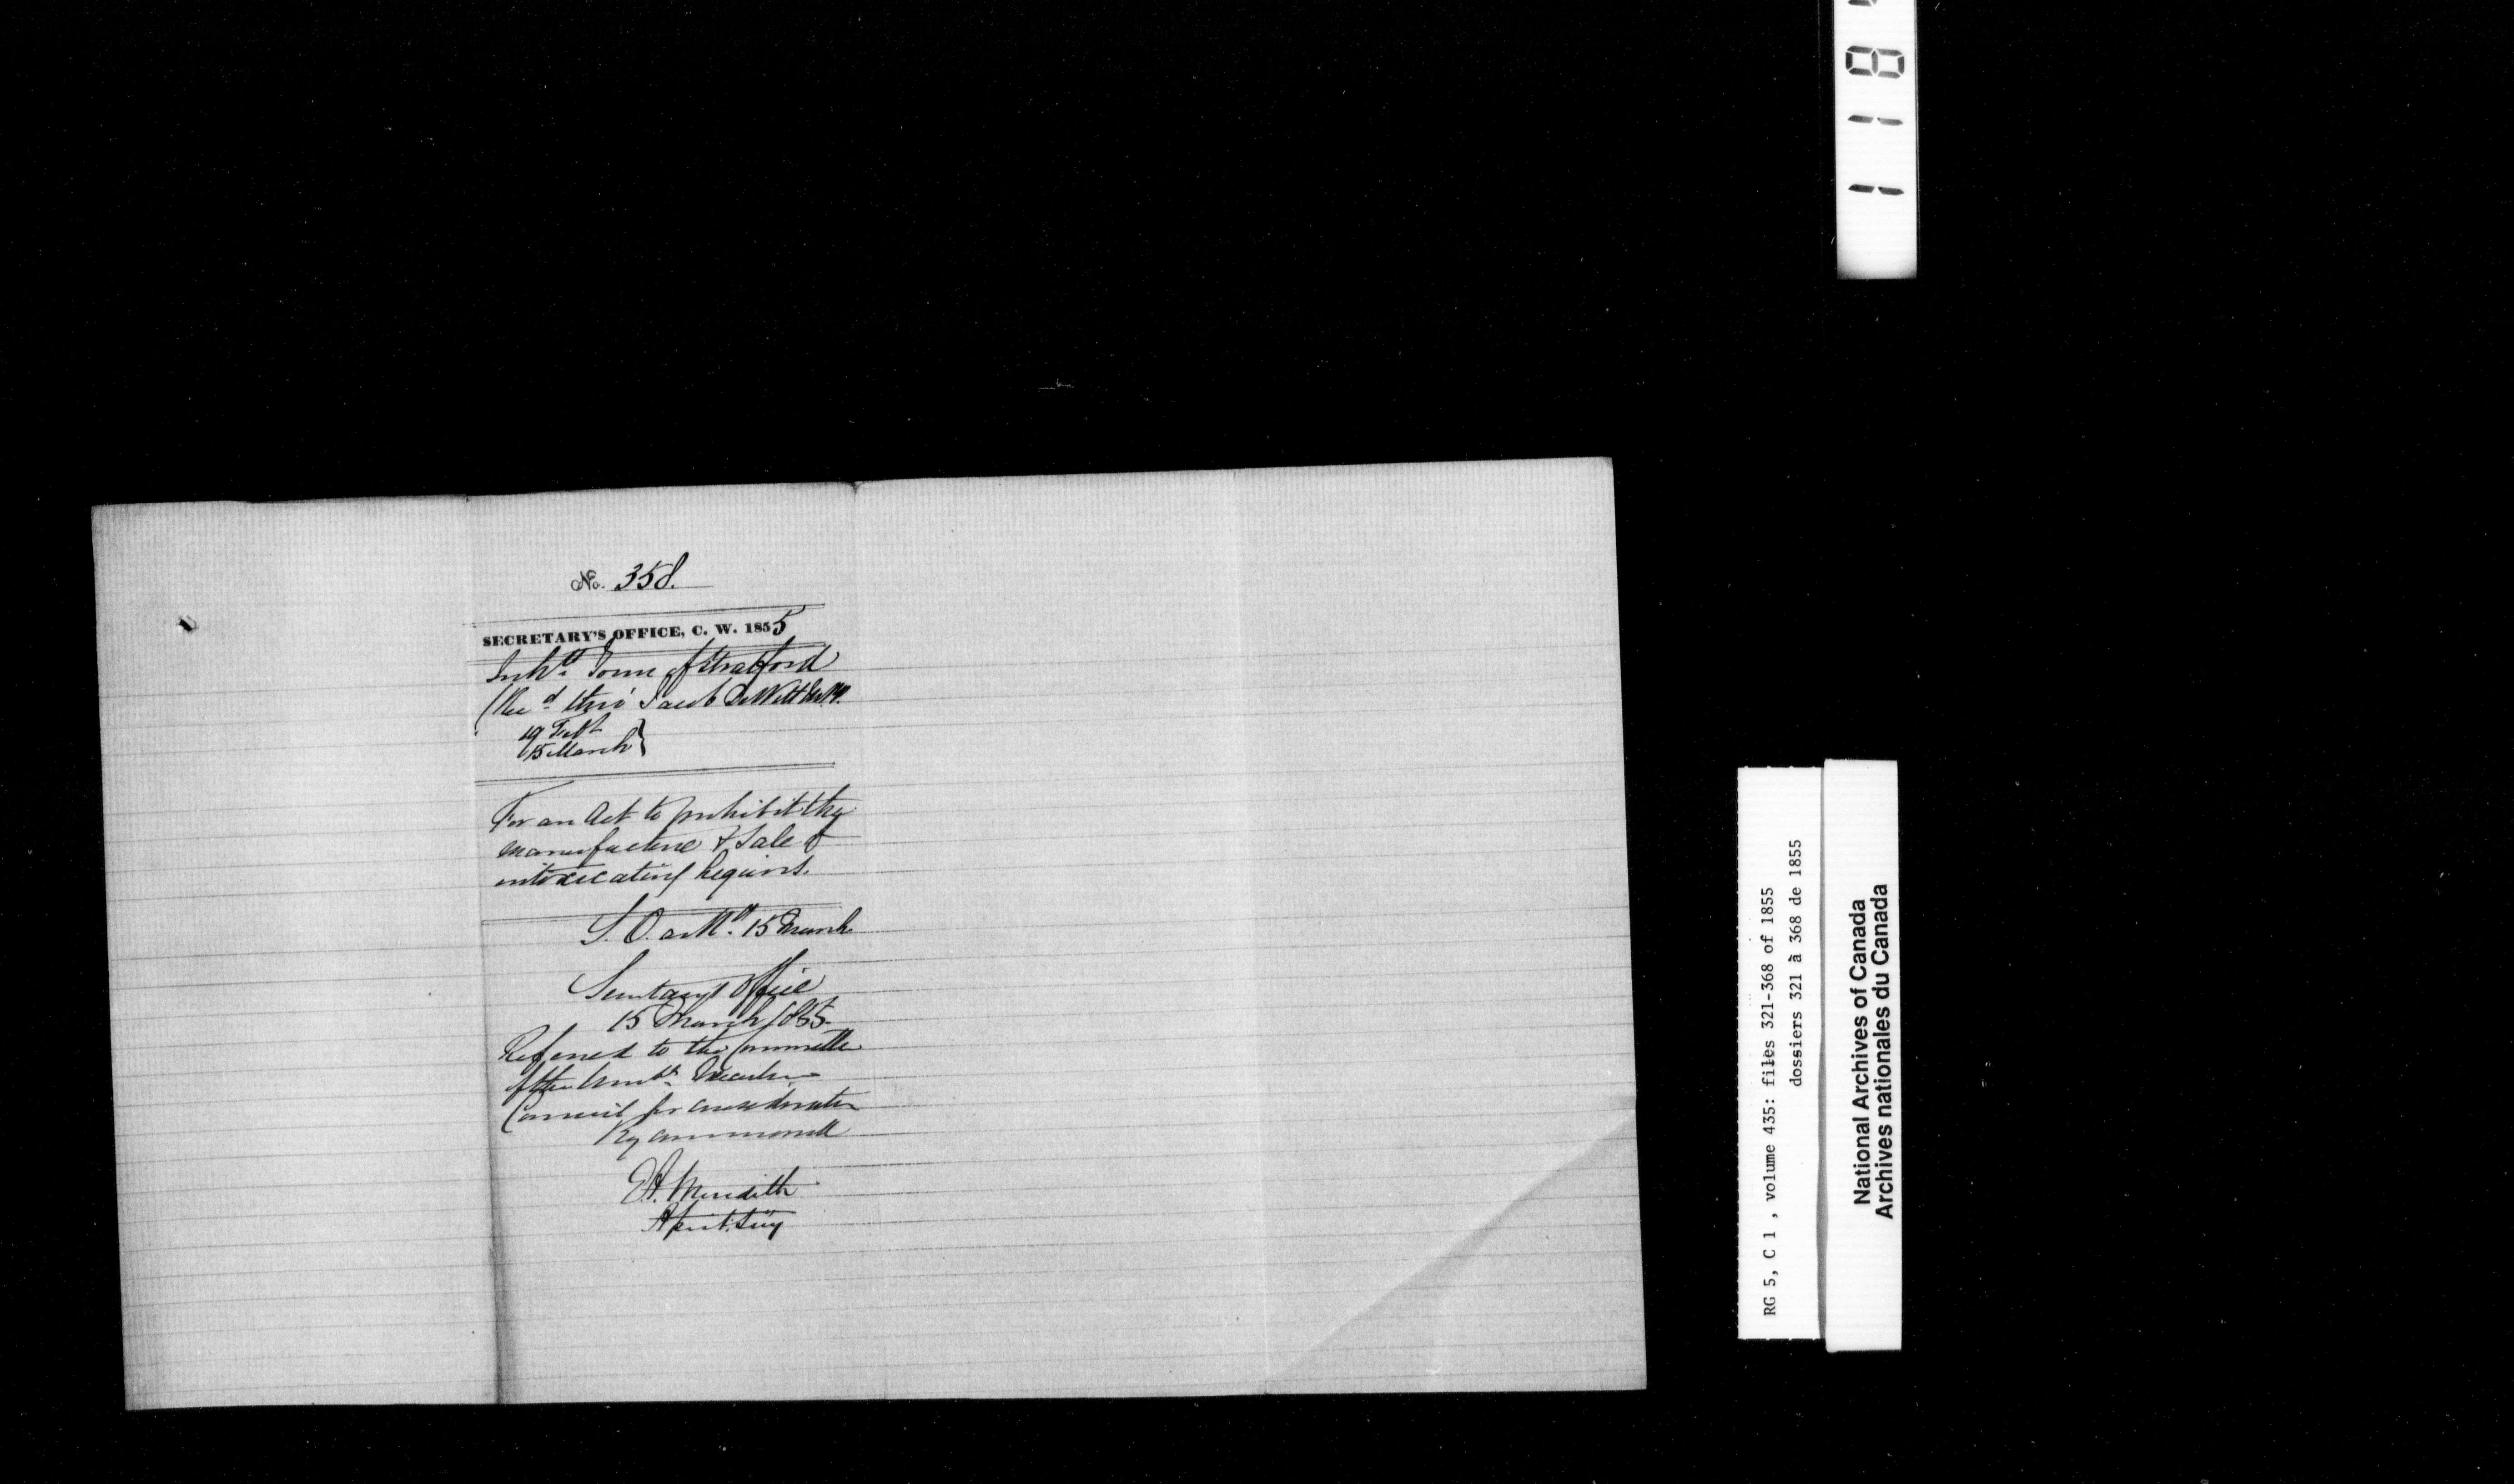 No. 358.
SECRETARY'S OFFICE, C. W. 1855
Inhts. Town of Stratford
(Recd. thro' Jacob DeWitt
19 Feby
15 March}
For an Act to prohibit the
manufacture & Sale of
intoxicating liquors.
S. O. 15 March
Secretary's Office
15 March 1855
Referred to the Committee
of the Honble. Executive
Council for consideration
By command
E.A. Meredith
Asst. Secy
1 1 8
RG 5, C 1 , volume 435: files 321-368 of 1855
dossiers 321 à 368 de 1855
National Archives of Canada
Archives nationales du Canada